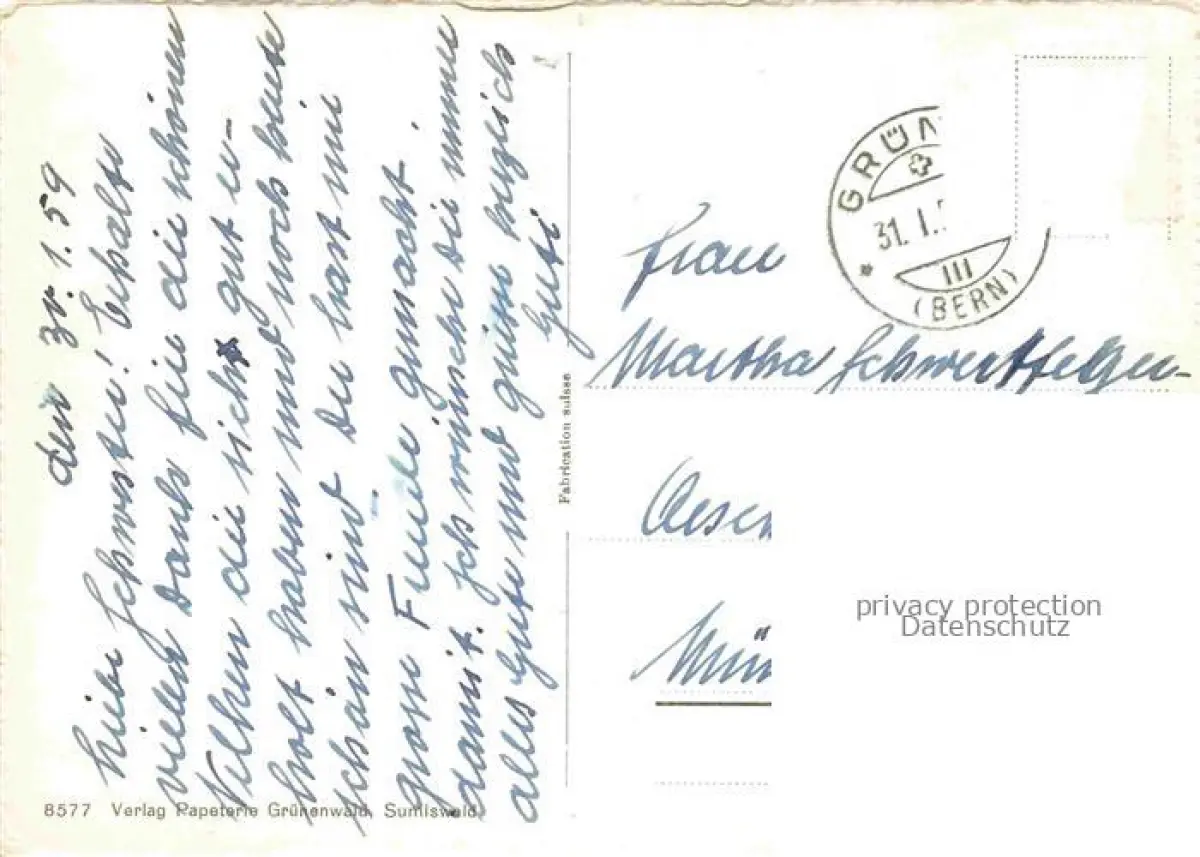 den 1.59
Liebe Schwester! Erhalte
vielen Dank für die schönen
Nelken die sich gut er-
holt haben und noch heute
schön sind. Du hast mir
grosse Freude gemacht
damit. Ich wünsche dir immer
alles Gute und grüsse herzlich
Guti
8577 Verlag Papeterie Grünenwald, Sumiswald
Fabrication suisse
GRÜN
31. I. 5
III
(BERN)
Frau
Martha Schwertfeger-
Aesch
Mün
privacy protection
Datenschutz